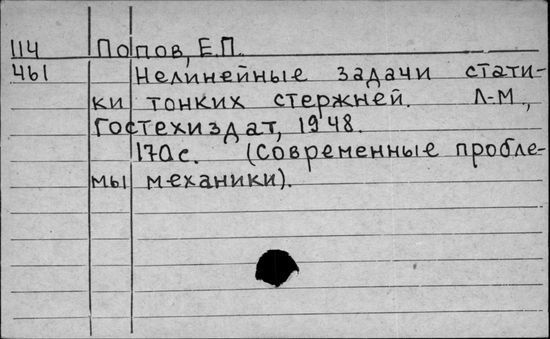 114 Попов, Е.П.
461 Нелинейные задачи стати-
ки тонких стержней. Л-М.,
Гостехиздат, 1948.
170с. (Современные пробле-
мы механики).